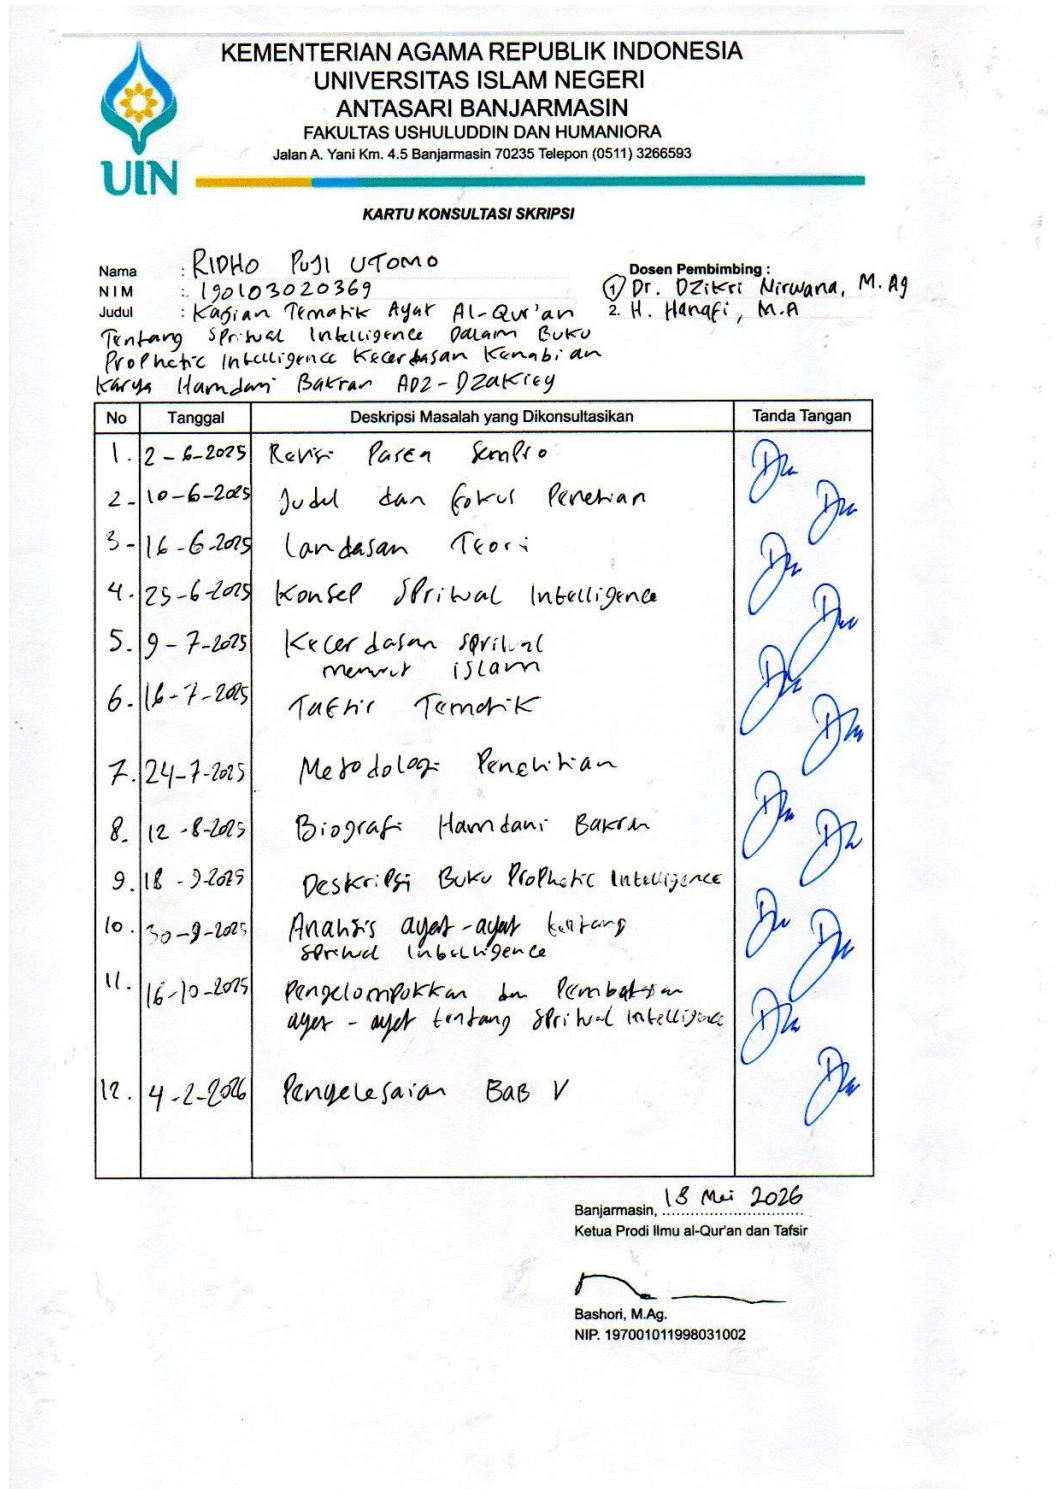 KEMENTERIAN AGAMA REPUBLIK INDONESIA
UNIVERSITAS ISLAM NEGERI
ANTASARI BANJARMASIN
FAKULTAS USHULUDDIN DAN HUMANIORA
Jalan A. Yani Km. 4.5 Banjarmasin 70235 Telepon (0511) 3266593
UIN
KARTU KONSULTASI SKRIPSI
Nama : RIDHO PUJI UTOMO
NIM : 190103020369
Judul : Kajian Tematik Ayat Al-Qur'an
Tentang Spritual Intelligence Dalam Buku
Prophetic Intelligence Kecerdasan Kenabian
Karya Hamdani Bakran ADZ-DZakiey
Dosen Pembimbing :
1 Dr. Dzikri Nirwana, M.Ag
2. H. Hanafi, M.A
No Tanggal Deskripsi Masalah yang Dikonsultasikan Tanda Tangan
1. 2-6-2025 Revisi Pasca Sempro
2- 10-6-2025 Judul dan Fokus Penelitian
3- 16-6-2025 Landasan Teori
4. 25-6-2025 Konsep Spritual Intelligence
5. 9-7-2025 Kecerdasan spritual
menurut islam
6. 16-7-2025 Tafsir Tematik
7. 24-7-2025 Metodologi Penelitian
8. 12-8-2025 Biografi Hamdani Bakran
9. 18-9-2025 Deskripsi Buku Prophetic Intelligence
10. 30-9-2025 Analisis ayat-ayat tentang
spritual intelligence
11. 16-10-2025 Pengelompokkan dan Pembahasan
ayat-ayat tentang spritual intelligence
12. 4-2-2026 Pengelesaian BAB V
Banjarmasin, 18 Mei 2026
Ketua Prodi Ilmu al-Qur'an dan Tafsir
Bashori, M.Ag.
NIP. 197001011998031002